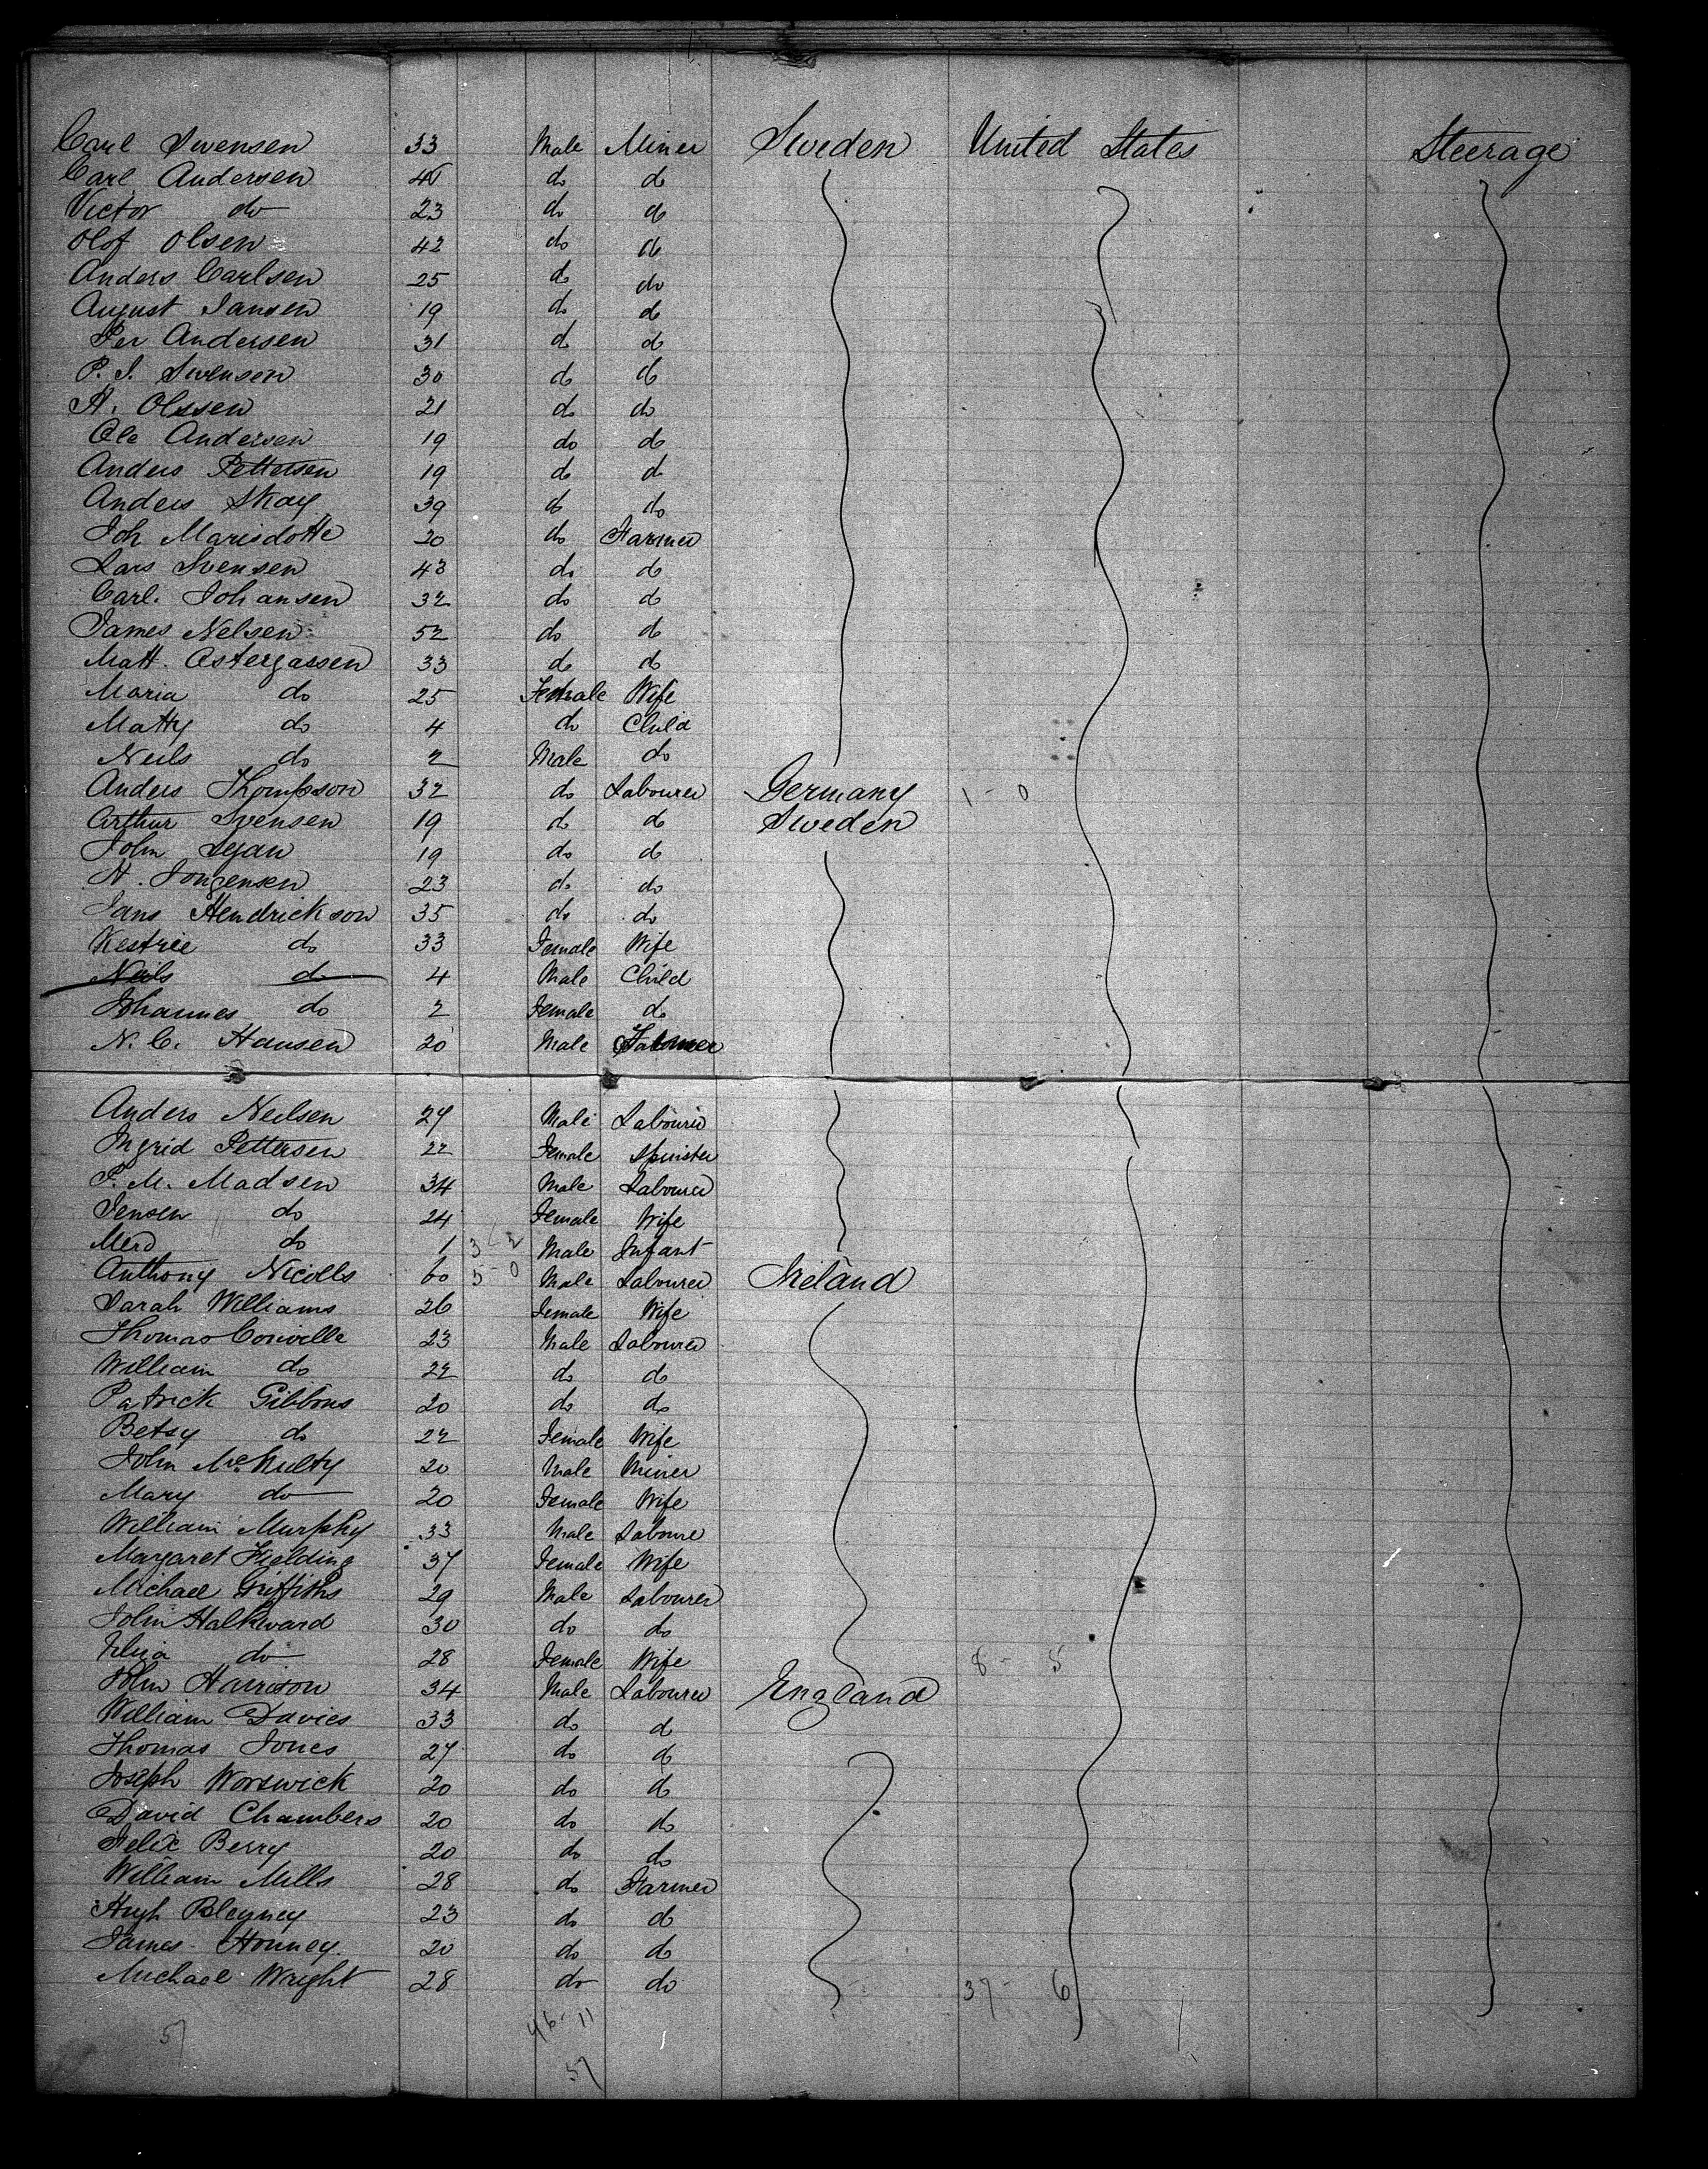 Carl Swensen 33 Male Miner Sweden United States Steerage
Carl Andersen 40 do do
Victor do 23 do do
Olof Olsen 42 do do
Anders Carlsen 25 do do
August Jansen 19 do do
Per Andersen 31 do do
P. S. Swensen 30 do do
A. Olssen 21 do do
Ole Andersen 19 do do
Anders Pettersen 19 do do
Anders Skay 39 do do
Joh Marisdotte 20 do Farmer
Lars Svensen 43 do do
Carl. Johansen 32 do do
James Nelsen 52 do do
Matt. Ostergassen 33 do do
Maria do 25 Female Wife
Matty do 4 do Child
Neils do 2 Male do
Anders Thompson 32 do Labourer Germany 1 - 0
Arthur Svensen 19 do do Sweden
John Syan 19 do do
N. Jorgensen 23 do do
Jans Hendrickson 35 do do
Kestrie do 33 Female Wife
Neils do 4 Male Child
Johannes do 2 Female do
N. C. Hansen 20 Male
Anders Neilsen 27 Male Labourer
Ingrid Pettersen 22 Female Spinster
P. M. Madsen 34 Male Labourer
Jensen do 24 Female Wife
Merd do 1 3 - 2 Male Infant
Anthony Nicolls 60 5 - 0 Male Labourer Ireland
Sarah Williams 26 Female Wife
Thomas Conville 23 Male Labourer
William do 22 do do
Patrick Gibbons 20 do do
Betsy do 22 Female Wife
John McNulty 20 Male Miner
Mary do 20 Female Wife
William Murphy 33 Male Laboure
Margaret Fielding 37 Female Wife
Michael Griffiths 29 Male Labourer
John Halkward 30 do do
Julia do 28 Female Wife 8 - 5
John Harrison 34 Male Labourer England
William Davies 33 do do
Thomas Jones 27 do do
Joseph Worswick 20 do do
David Chambers 20 do do
Felix Berry 20 do do
William Mills 28 do Farmer
Hugh Bleyney 23 do do
James Honney. 20 do do
Michael Wright 28 do do 37 - 6
57 46 - 11
57